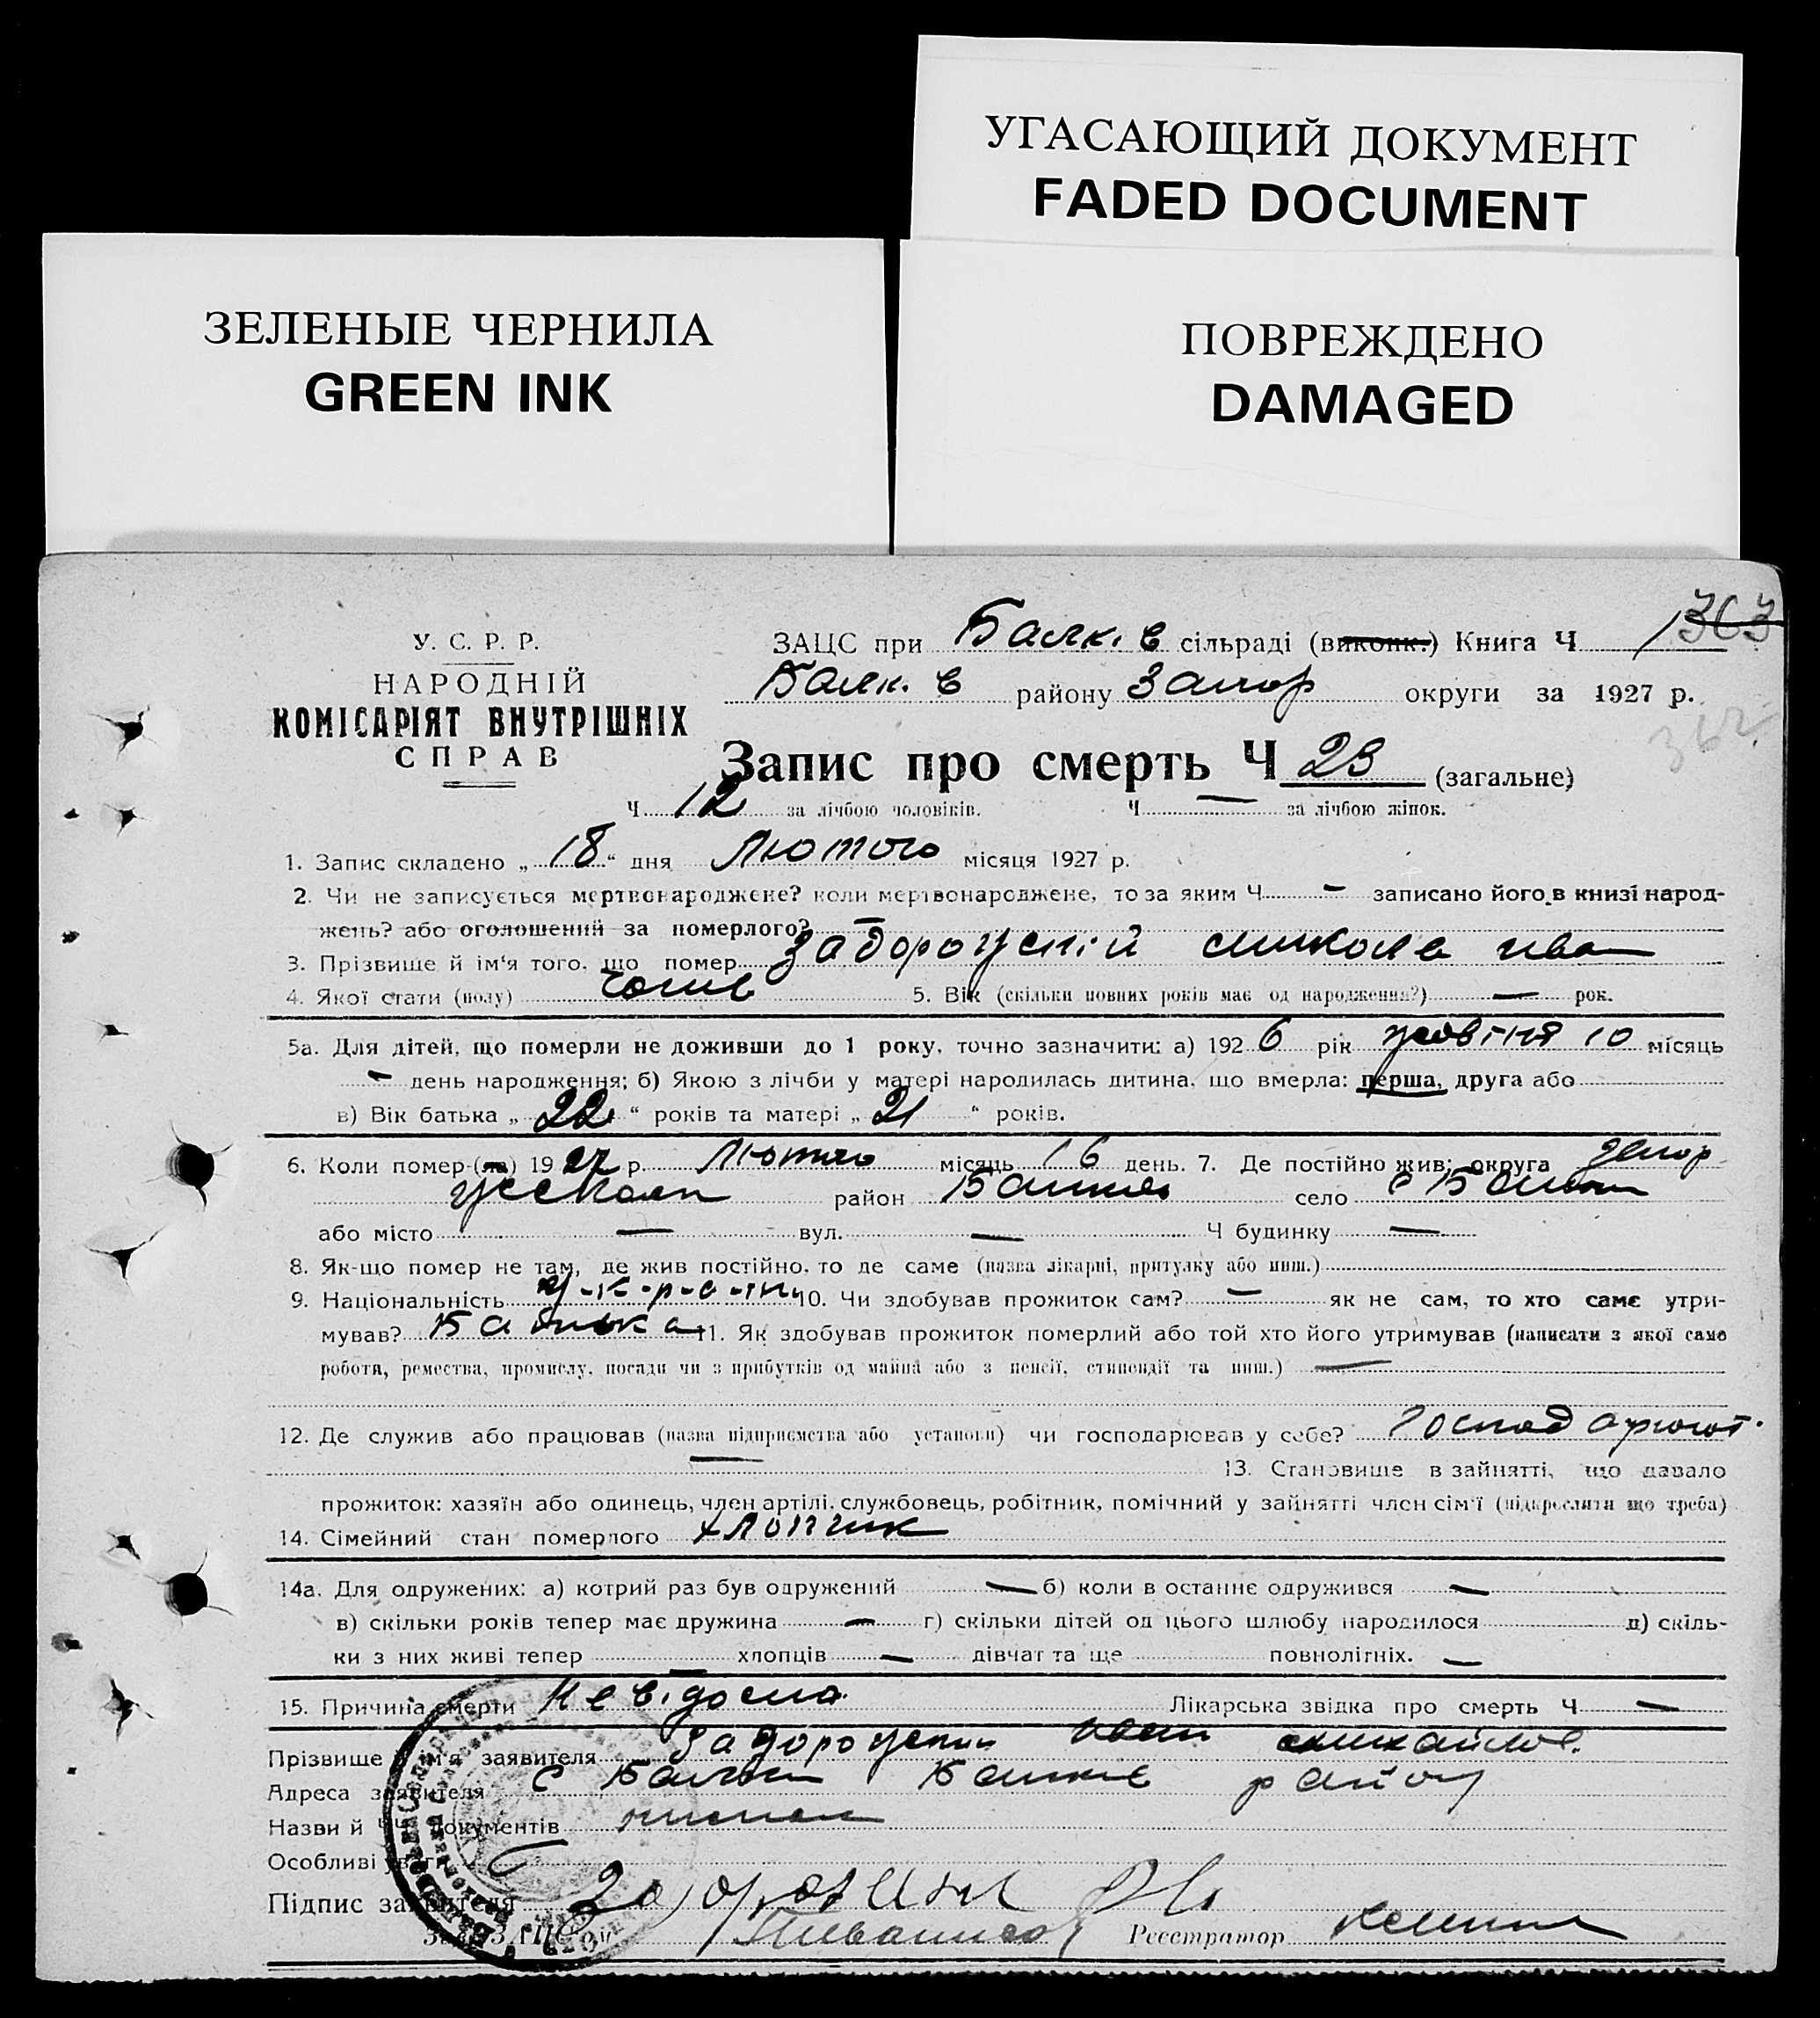 УГАСАЮЩИЙ ДОКУМЕНТ
FADED DOCUMENT
ЗЕЛЕНЫЕ ЧЕРНИЛА
GREEN INK
ПОВРЕЖДЕНО
DAMAGED
У. С. Р. Р.
НАРОДНІЙ
КОМІСАРІЯТ ВНУТРІШНІХ
СПРАВ
ЗАЦС при Балк. в сільраді (виконк.) Книга Ч 1 303
Балк. в району Запор округи за 1927 р.
362
Запис про смерть Ч 23 (загальне)
Ч 12 за лічбою чоловіків. Ч — за лічбою жінок.
1. Запис складено „ 18 “ дня Лютого місяця 1927 р.
2. Чи не записується мертвонароджене? коли мертвонароджене, то за яким Ч — записано його в книзі народ-
жень? або оголошений за померлого? —
3. Прізвище й ім'я того, що помер Задорожній Микола Іва
4. Якої стати (полу) Чолов 5. Вік (скільки повних років має од народження?) — рок.
5а. Для дітей, що померли не доживши до 1 року, точно зазначити: а) 1926 рік жовтня 10 місяць
— день народження; б) Якою з лічби у матері народилась дитина, що вмерла: перша, друга або
в) Вік батька „ 22 “ років та матері „ 21 “ років.
6. Коли помер (ла) 1927 р. Лютого місяць 16 день. 7. Де постійно жив: округа Запор
район село с Балки
або місто — вул. — Ч будинку —
8. Як-що помер не там, де жив постійно, то де саме (назва лікарні, притулку або инш.)
9. Національність 10. Чи здобував прожиток сам? — як не сам, то хто саме утри-
мував? Батька 11. Як здобував прожиток померлий або той хто його утримував (написати з якої саме
роботи, ремества, промислу, посади чи з прибутків од майна або з пенсії, стипендії та инш.) —
12. Де служив або працював (назва підприємства або установи) чи господарював у себе? Господарюют.
— 13. Становище в зайнятті, що давало
прожиток: хазяїн або одинець, член артілі, службовець, робітник, помічний у зайнятті член сім'ї (підкреслити що треба)
14. Сімейний стан померлого хлопчик
14а. Для одружених: а) котрий раз був одружений — б) коли в останнє одружився —
в) скільки років тепер має дружина — г) скільки дітей од цього шлюбу народилося д) скіль-
ки з них живі тепер — хлопців — дівчат та ще повнолітніх. —
15. Причина смерти Невідома. Лікарська звідка про смерть Ч —
Прізвище й ім'я заявителя Задорожній Іван Михайлов.
Адреса заявителя с Балки Балків району
Назви й ЧЧ документів
Особливі уваги —
Підпис заявителя
Зав. ЗАЦС'ом Реєстратор